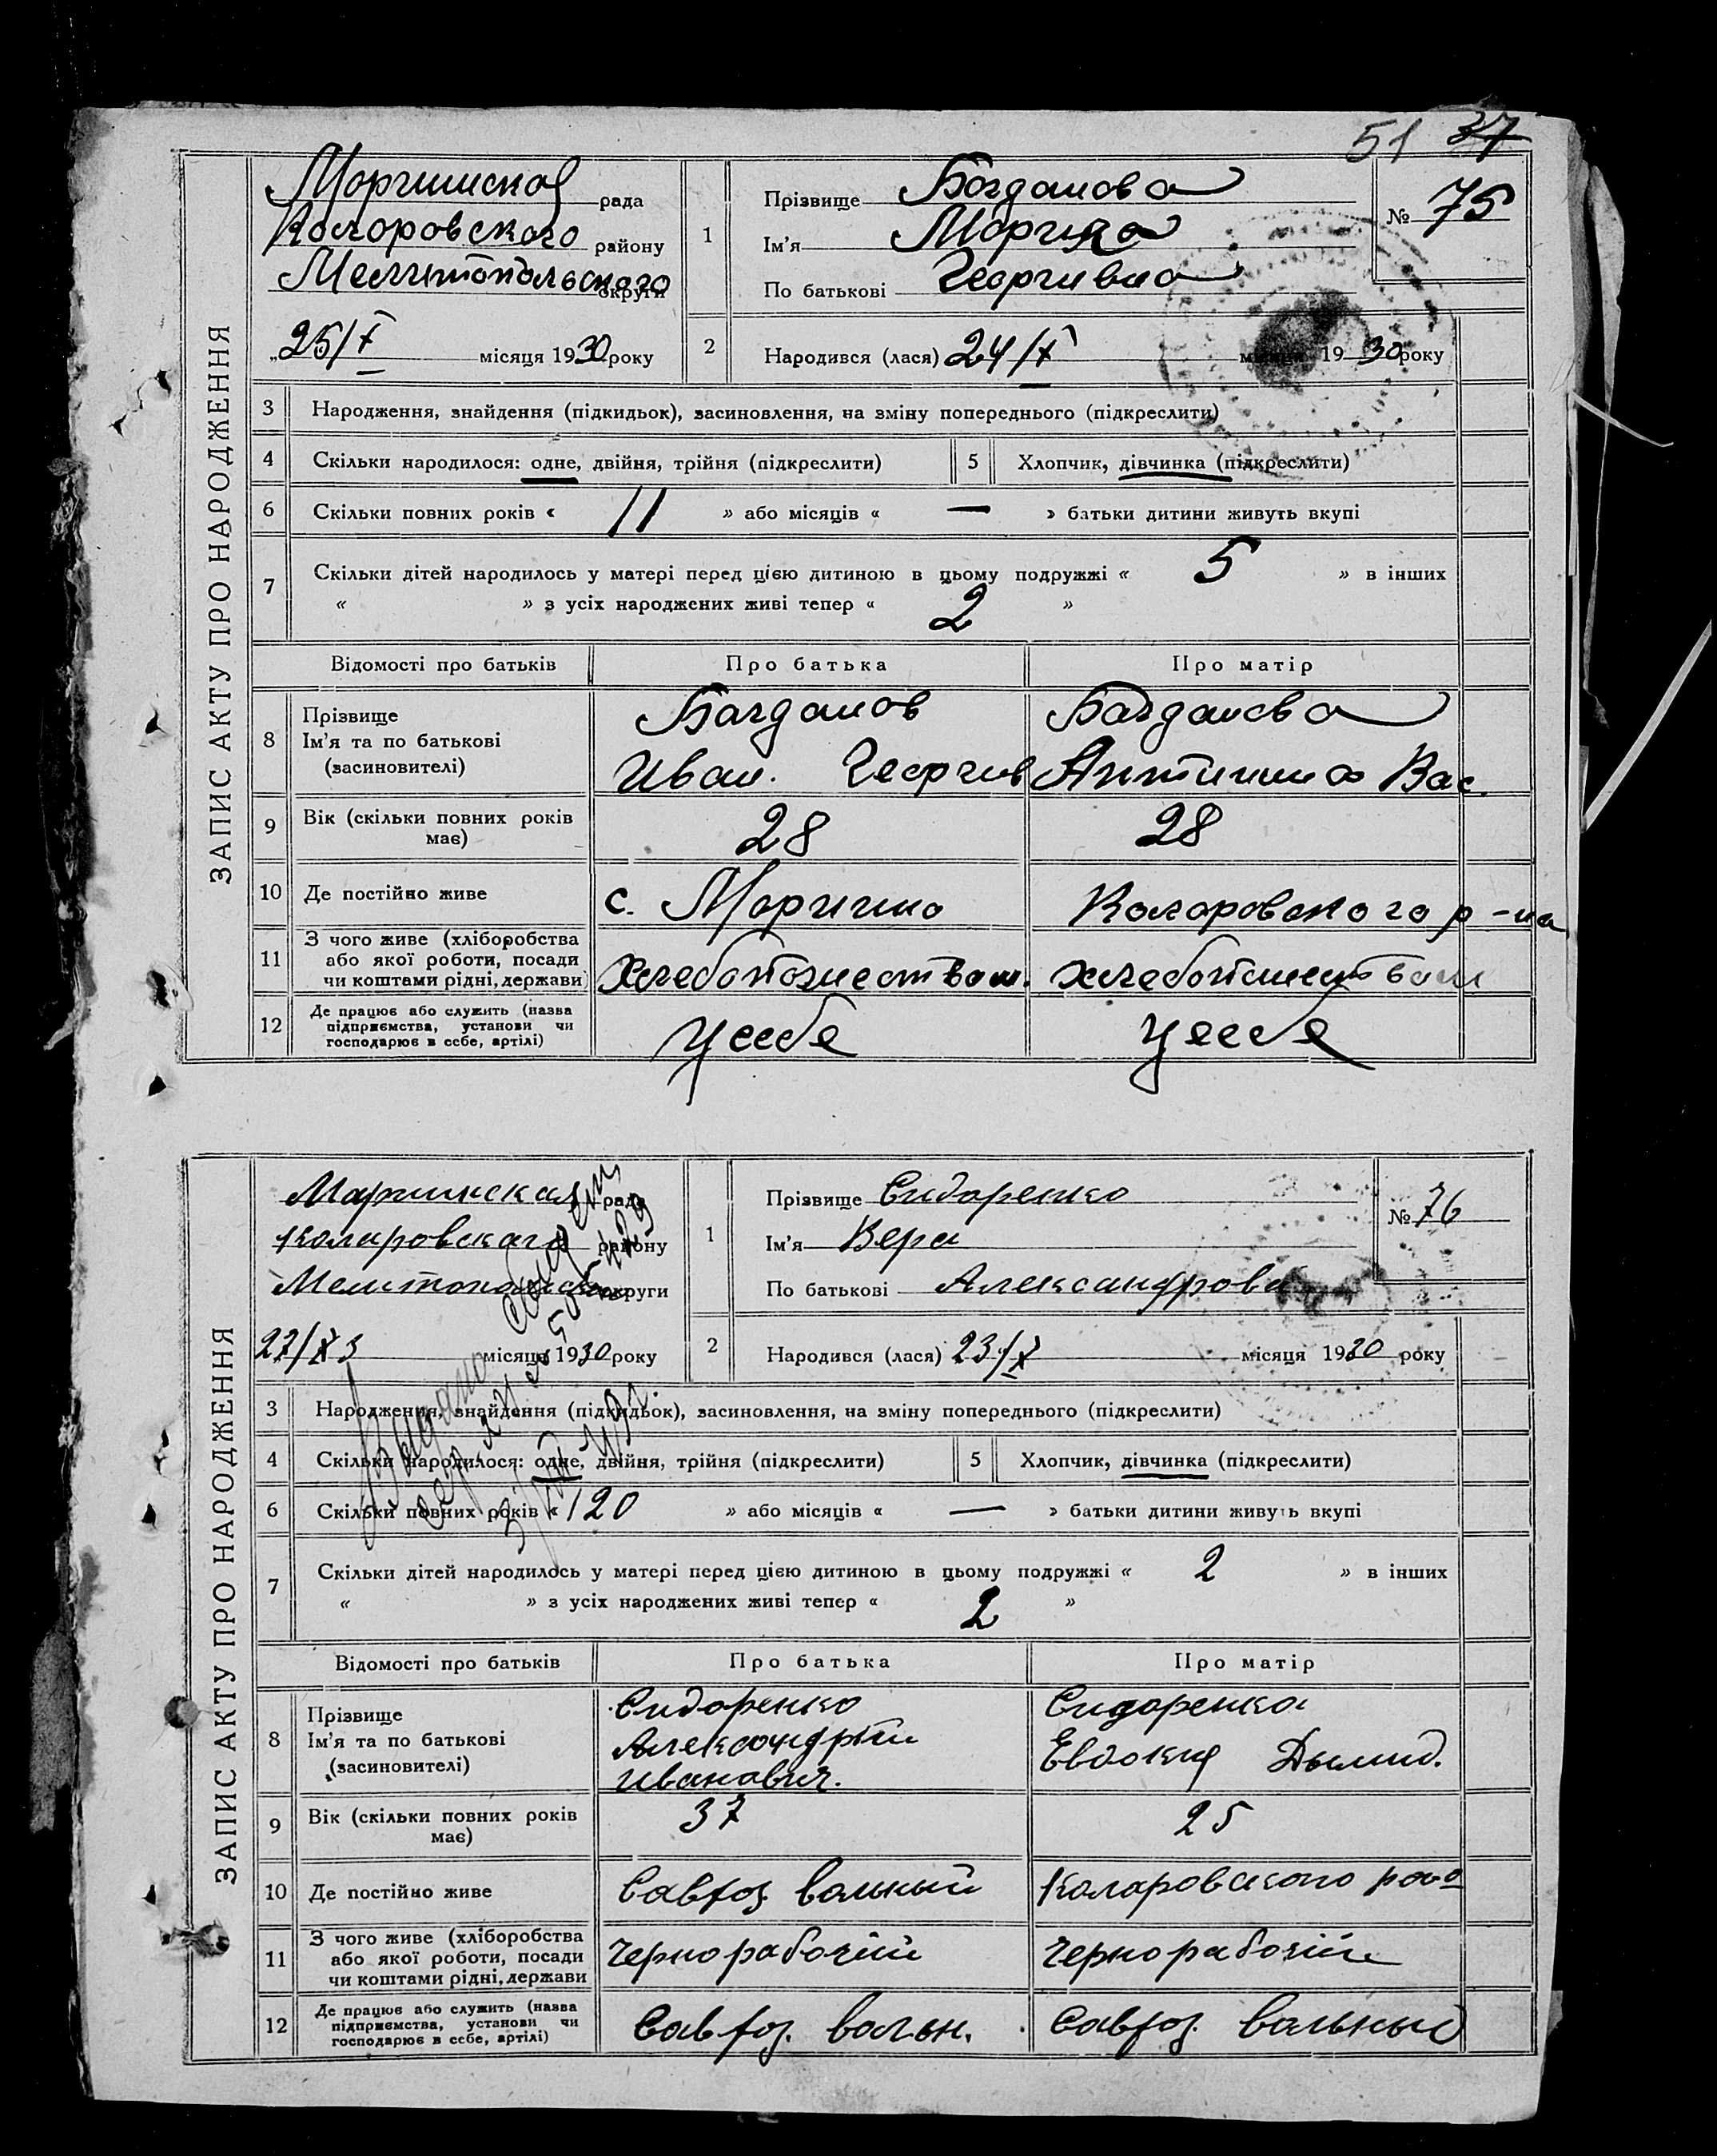 51 37
ЗАПИС АКТУ ПРО НАРОДЖЕННЯ
Моринская рада
Коларовского району
Мелитопольского округи
„25/X місяця 1930 року
1
Прізвище Богданова
Ім'я Мария
По батькові Георгивна
№ 75
2
Народився (лася) 24/X місяця 1930 року
3 Народження, знайдення (підкидьок), засиновлення, на зміну попереднього (підкреслити)
4 Скільки народилося: одне, двійня, трійня (підкреслити) 5 Хлопчик, дівчинка (підкреслити)
6 Скільки повних років « 11 » або місяців « — » батьки дитини живуть вкупі
7 Скільки дітей народилось у матері перед цією дитиною в цьому подружжі « 5 » в інших
« » з усіх народжених живі тепер « 2 »
Відомості про батьків Про батька Про матір
8 Прізвище Ім'я та по батькові (засиновителі)
Багданов Багданова
Иван. Георгив Антинина Вас.
9 Вік (скільки повних років має) 28 28
10 Де постійно живе с. Мориино Коларовского р-на
11 З чого живе (хліборобства або якої роботи, посади чи коштами рідні, держави) Хлебопашеством. хлебопашеством
12 Де працює або служить (назва підприємства, установи чи господарює в себе, артілі) у себе у себе
ЗАПИС АКТУ ПРО НАРОДЖЕННЯ
Маринская рада
Коларовского району
округи
27/X 3 місяця 1930 року
Выдано
1
Прізвище Сидоренко
Ім'я Вера
По батькові Александрова
№ 76
2
Народився (лася) 23/X місяця 1930 року
3 Народження, знайдення (підкидьок), засиновлення, на зміну попереднього (підкреслити)
4 Скільки народилося: одне, двійня, трійня (підкреслити) 5 Хлопчик, дівчинка (підкреслити)
6 Скільки повних років « 120 » або місяців « — » батьки дитини живуть вкупі
7 Скільки дітей народилось у матері перед цією дитиною в цьому подружжі « 2 » в інших
« » з усіх народжених живі тепер « 2 »
Відомості про батьків Про батька Про матір
8 Прізвище Ім'я та по батькові (засиновителі)
Сидоренко Сидоренко
Евдокия Дымид.
Иванович.
9 Вік (скільки повних років має) 37 25
10 Де постійно живе Савхоз вольный Коларовского
11 З чого живе (хліборобства або якої роботи, посади чи коштами рідні, держави Чернорабочий Чернорабочий
12 Де працює або служить (назва підприємства, установи чи господарює в себе, артілі) Савхоз. вольн. Савхоз. вольный